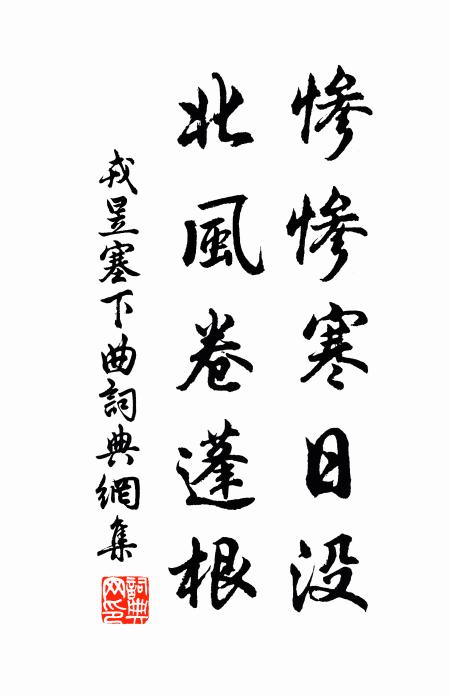 惨惨寒日没
北風卷蓬根
戎昱塞下曲詞典網集
詞典網印